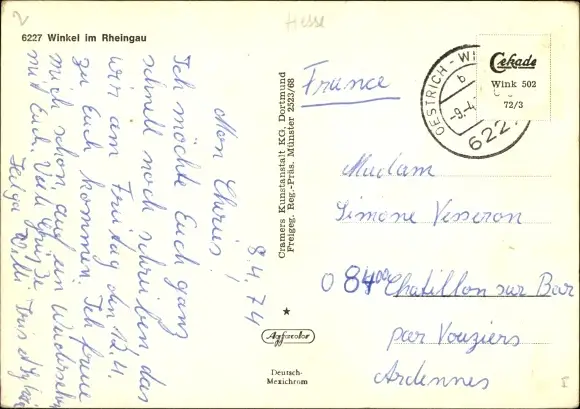 2
Hesse
6227 Winkel im Rheingau
8.4.74
Mon Chérie,
Ich möchte Euch ganz
schnell noch schreiben das
wir am Freitag den 12.4.
zu Euch kommen. Ich freue
mich schon auf ein Wiedersehen
mit Euch. Viele Grüße
Helga Willi Iris
Cramers Kunstanstalt KG, Dortmund
Freigeg. Reg.-Präs. Münster 2523/68
★
Agfacolor
Deutsch-
Mexichrom
France
OESTRICH-WI
6227
Cekade
Wink 502
72/3
Madam
Simone Vesseron
08400 Chatillon sur Bar
par Vouziers
Ardennes